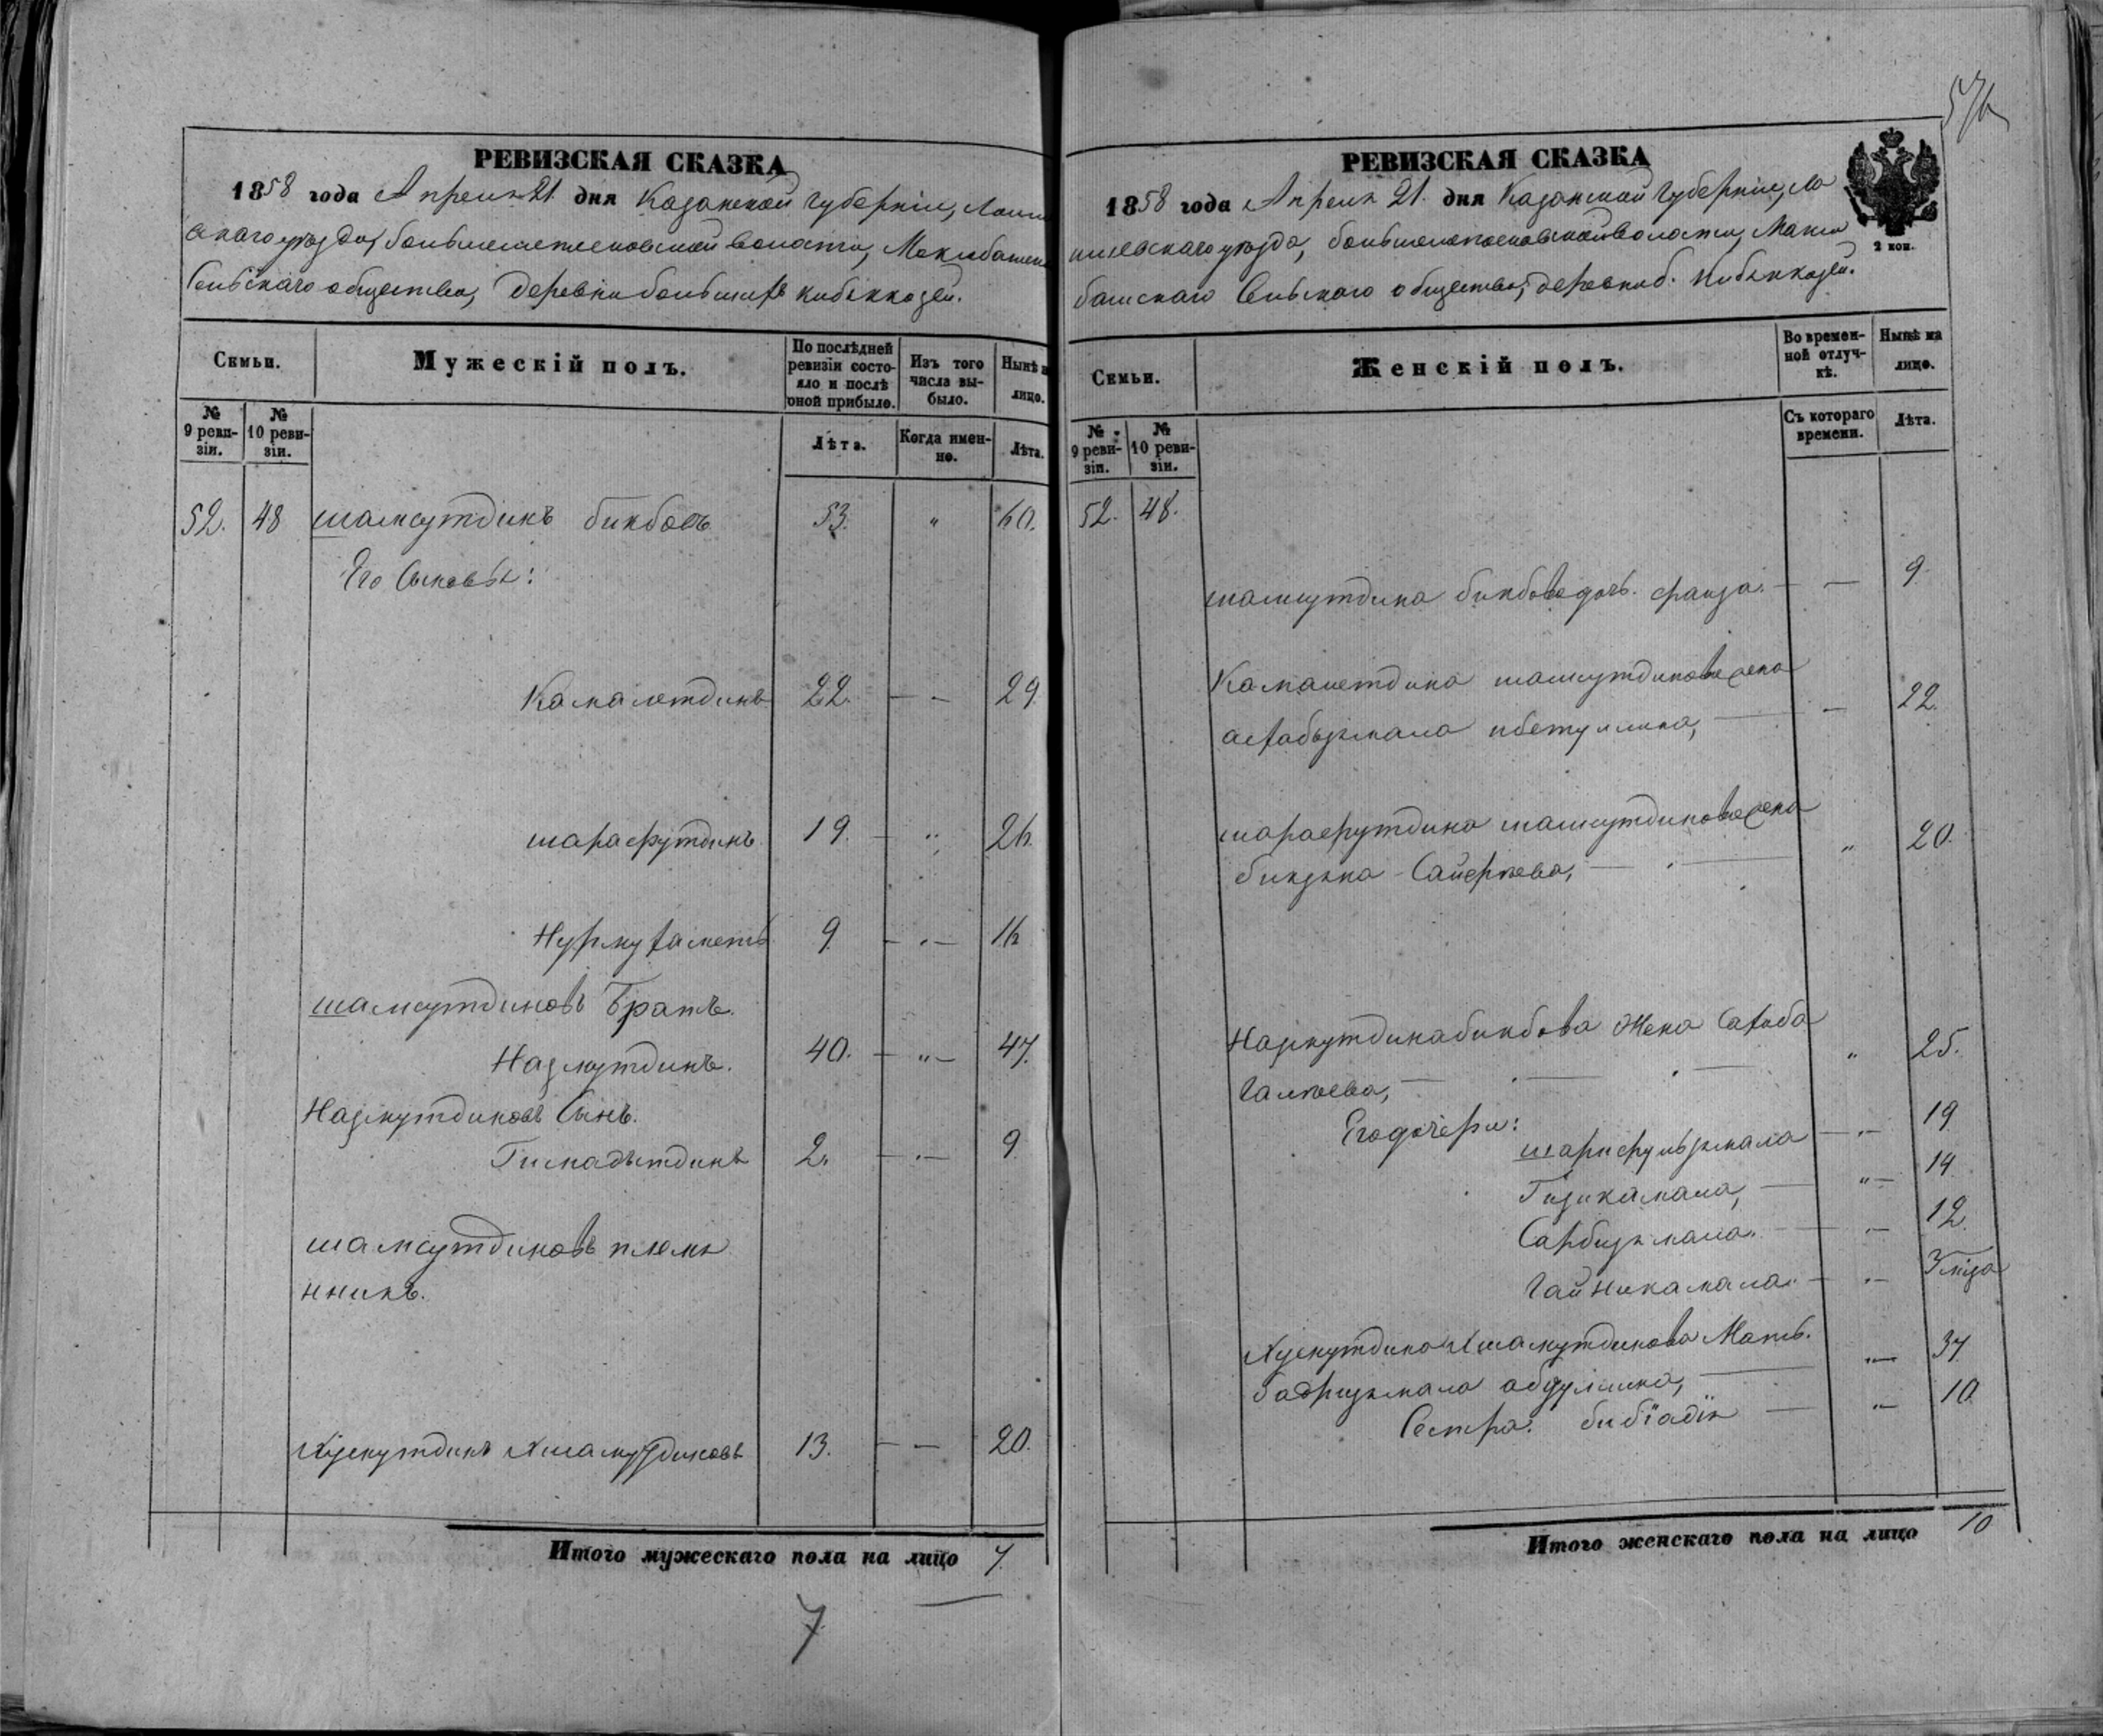 57 6
РЕВИЗСКАЯ СКАЗКА
1858 года Апреля 21 дня Казанской губернiи, Лаиш
скаго уѣзда, большеметесковской волости, Маклибашен
Сельскаго общества, Деревни большихъ кибякъозей.
Семьи.
Мужескiй полъ.
По послѣдней ревизiи состояло и послѣ оной прибыло.
Изъ того числа выбыло.
Нынѣ на лицо.
№ 9 ревизiи.
№ 10 ревизiи.
Лѣта.
Когда именно.
Лѣта.
52. 48 шамсутдинъ бикбовъ 53. " 60.
Его Сыновья:
Камалетдинъ 22. — — 29.
шарафутдинъ 19. — " 26.
Нурмухаметъ 9. — — 16
шамсутдиновъ Братъ.
Назмутдинъ. 40. — " — 47.
Назмутдиновъ Сынъ.
Гимадътдинъ 2. — — 9
шамсутдиновъ племя
нникъ.
Хуснутдинъ 13. — — 20.
Итого мужескаго пола на лицо 7.
7
РЕВИЗСКАЯ СКАЗКА
1858 года Апреля 21. дня Казанской Губернiи, Ла
ишевскаго уѣзда, волости, Макли
башскаго Сельскаго общества, деревни б. Кибякъозей.
2 коп.
Семьи.
Женскiй полъ.
Во временной отлучкѣ.
Нынѣ на лицо.
№ 9 ревизiи.
№ 10 ревизiи.
Съ котораго времени.
Лѣта.
52. 48.
шамсутдина бикбова дочь. фаиза. — — 9.
Камалетдина шамсутдинова жена
— — 22.
шарафутдина шамсутдинова жена
Сайфѣева, — " 20.
Назмутдина бикбова Жена Сахоба
Галѣева, — " 25.
Его дочери:
шарифульзямала — " — 19
Гизикамала, — " — 14
Сарбизямала. — " — 12.
Гайникамала. — " — 3 мѣза
Хуснутдина Мать.
Бадризямала абдуллина, — " — 37.
Сестра. бибiадiя — " — 10.
Итого женскаго пола на лицо 10